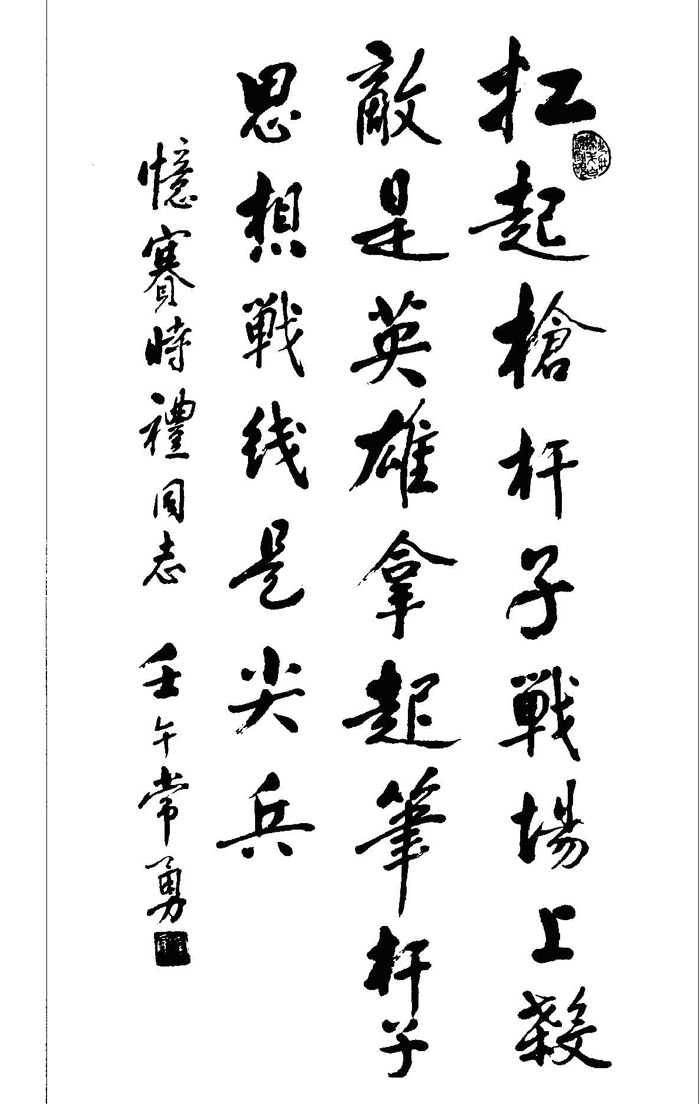 扛起槍杆子戦場上殺
敵是英雄拿起筆杆子
思想戦线是尖兵
憶賽時禮同志 壬午常勇